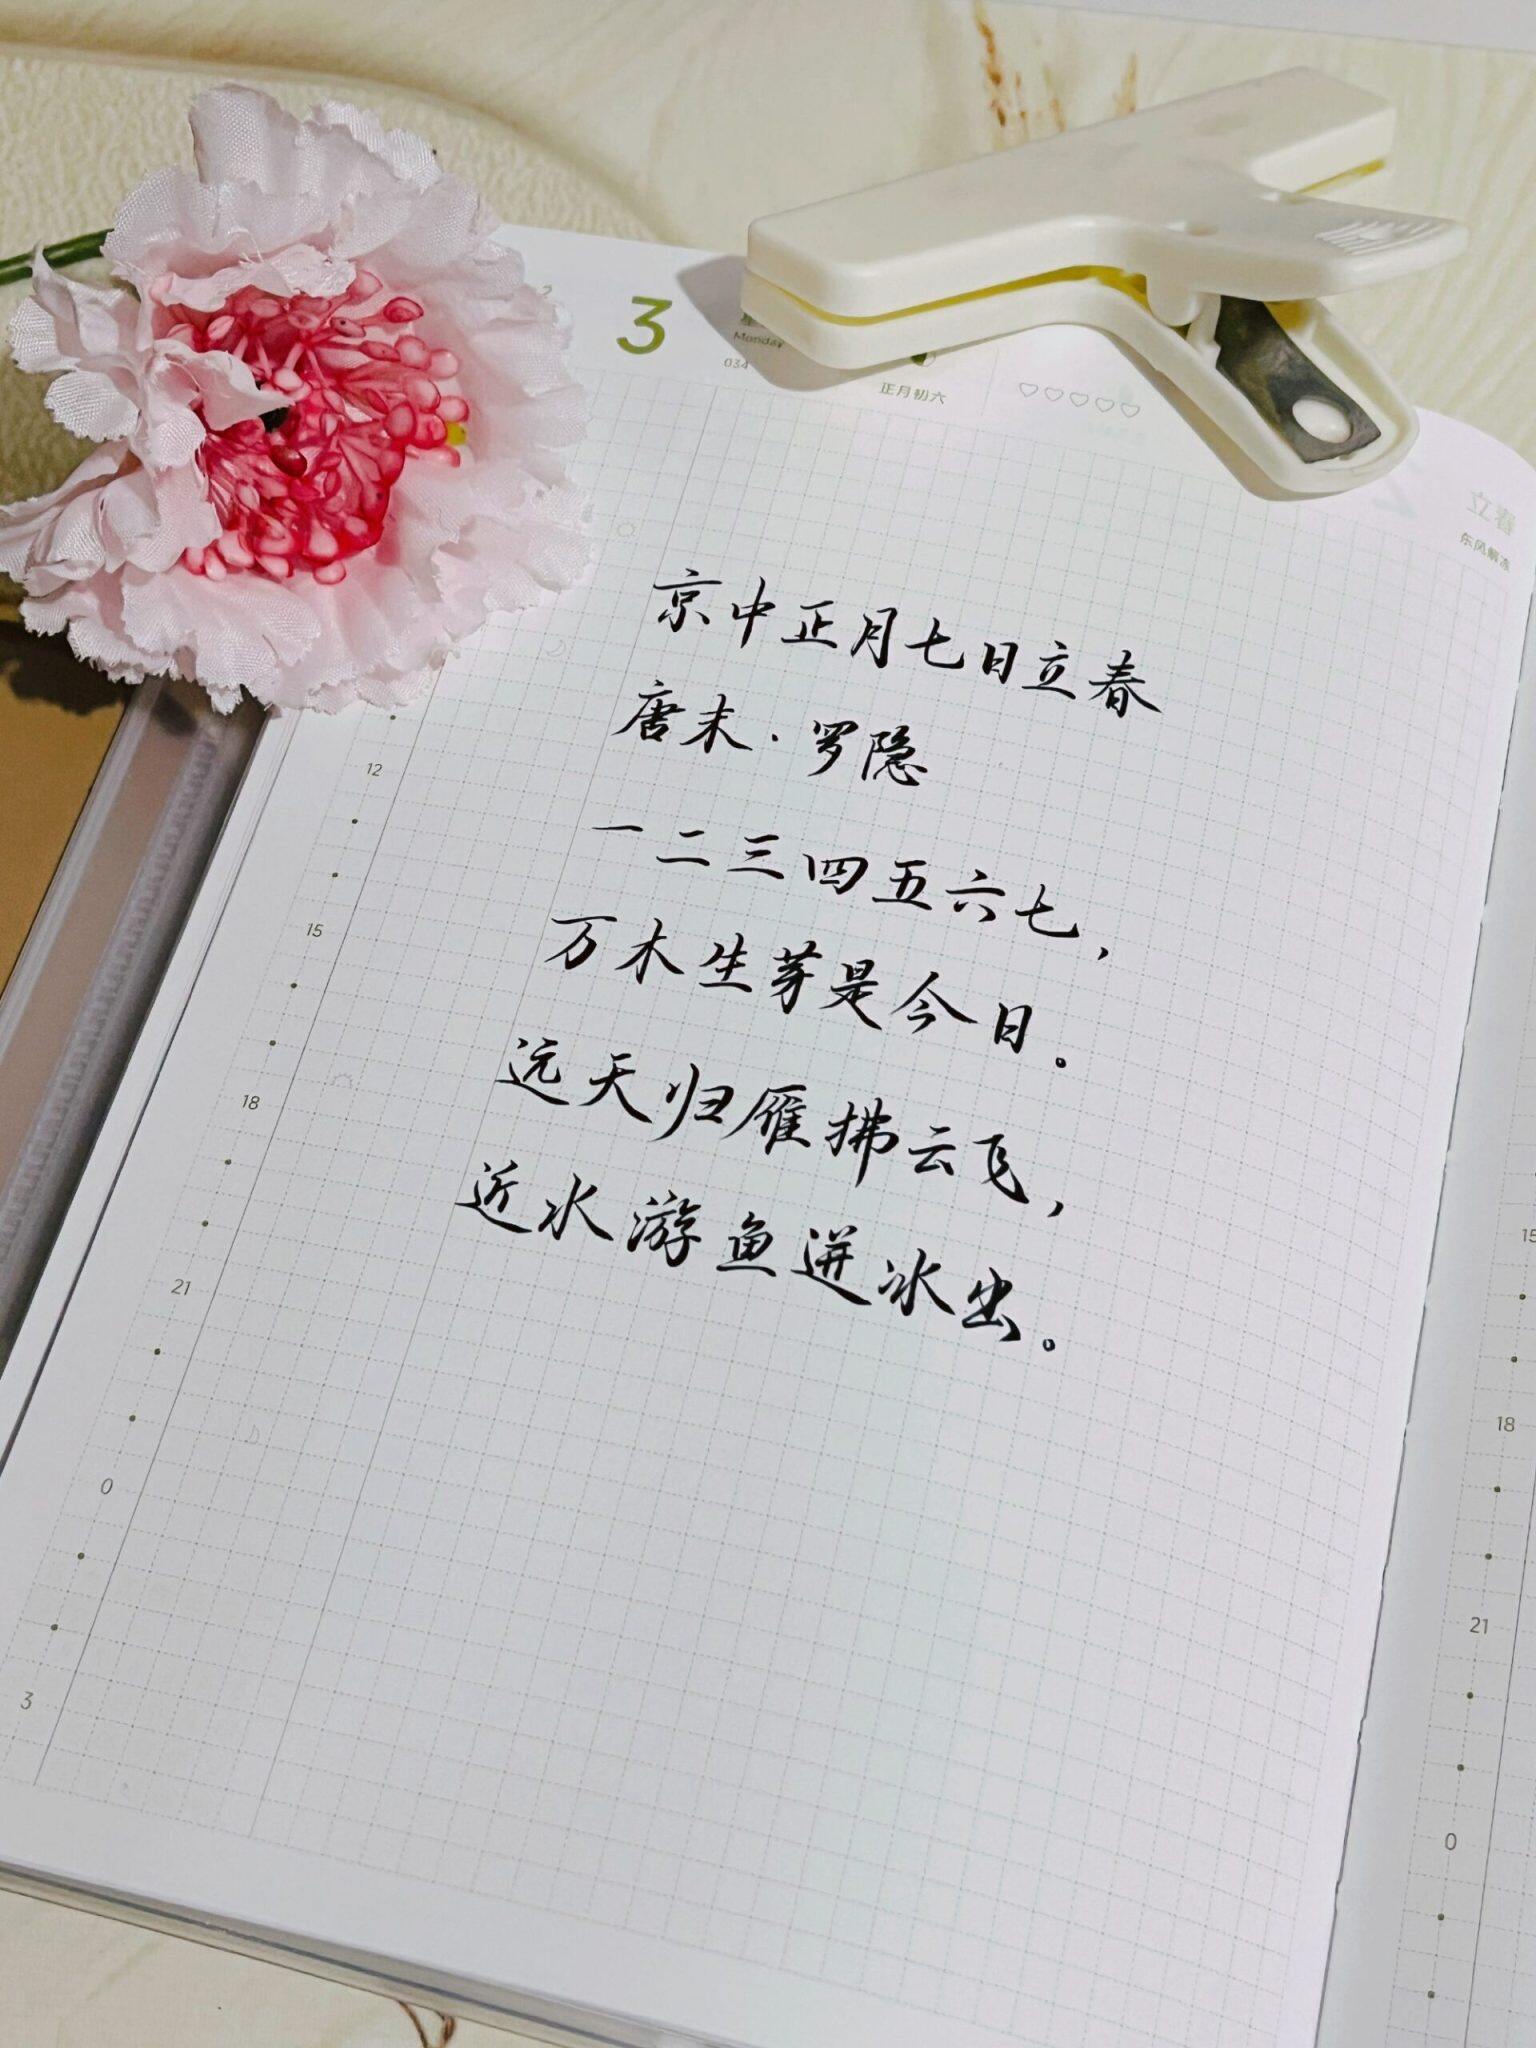 3
Monday
034
正月初六
立春
东风解冻
京中正月七日立春
唐末·罗隐
一二三四五六七，
万木生芽是今日。
远天归雁拂云飞，
近水游鱼迸冰出。
12
15
18
21
0
3
15
18
21
0